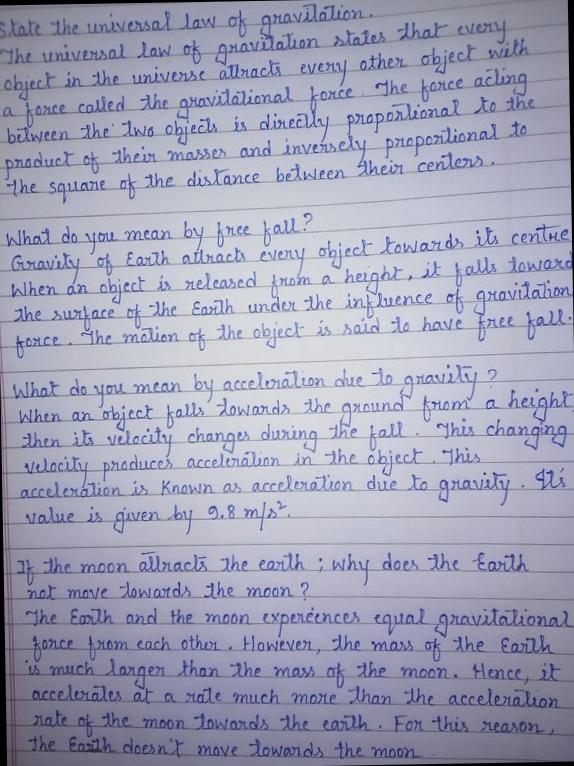 State the universal law of gravitation.
The universal law of gravitation states that every
object in the universe attracts every other object with
a force called the gravitational force. The force acting
between the two objects is directly proportional to the
product of their masses and inversely proportional to
the square of the distance between their centers.
What do you mean by free fall?
Gravity of Earth attracts every object towards its centre
When an object is released from a height, it falls toward
the surface of the Earth under the influence of gravitation
force. The motion of the object is said to have free fall.
What do you mean by acceleration due to gravity?
When an object falls towards the ground from a height,
then its velocity changes during the fall. This changing
velocity produces acceleration in the object. This
acceleration is known as acceleration due to gravity. It's
value is given by 9.8 m/s².
If the moon attracts the earth; why does the Earth
not move towards the moon?
The Earth and the moon expereences equal gravitational
force from each other. However, the mass of the Earth
is much larger than the mass of the moon. Hence, it
accelerates at a rate much more than the acceleration
rate of the moon towards the earth. For this reason,
the Earth doesn't move towards the moon.